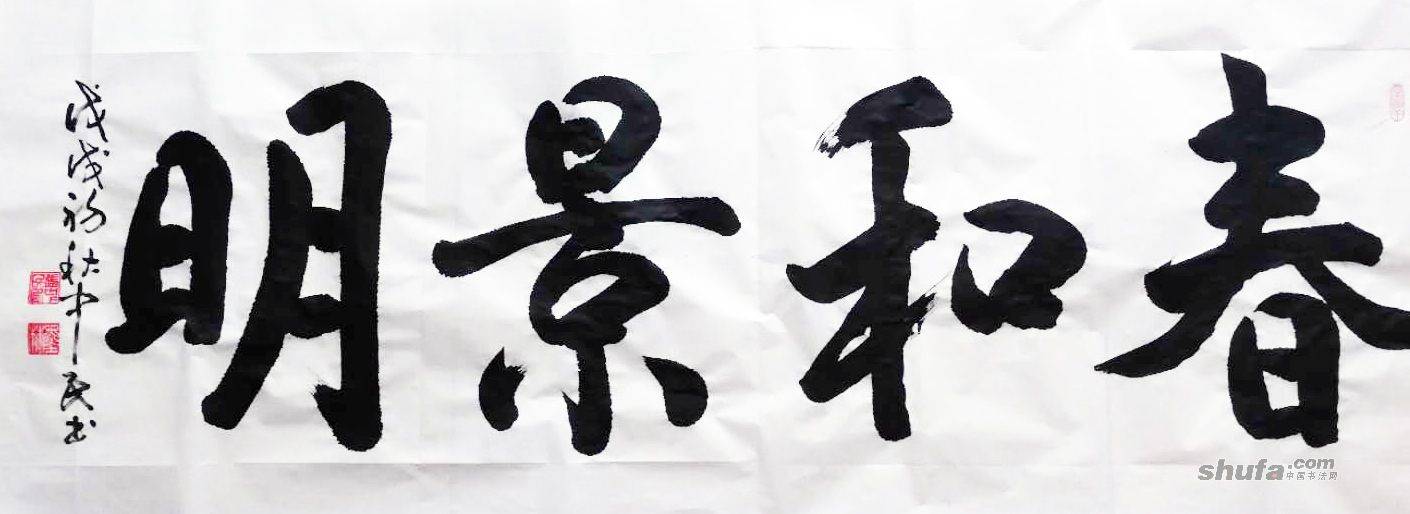 春和景明
戊戌初秋中民书
shufa.com
中国书法网